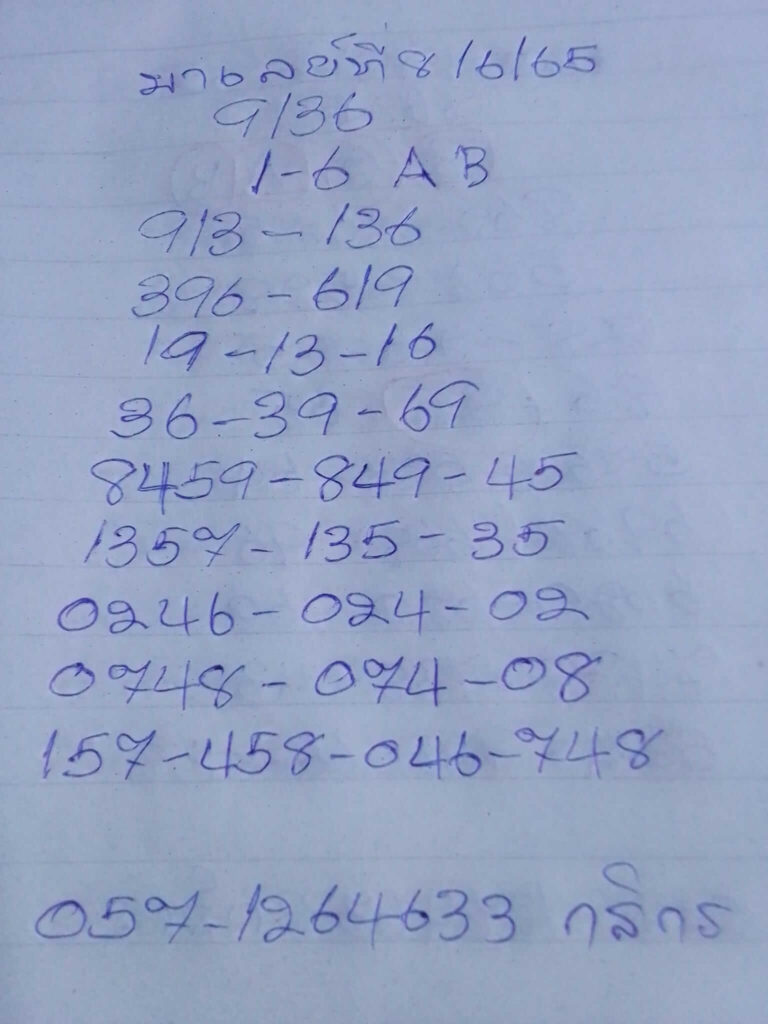 มาเลย์ที่ 8/6/65
9136
1-6 A B
913-136
396-619
19-13-16
36-39-69
8459-849-45
1357-135-35
0246-024-02
0748-074-08
157-458-046-748
057-1264633 กสิกร